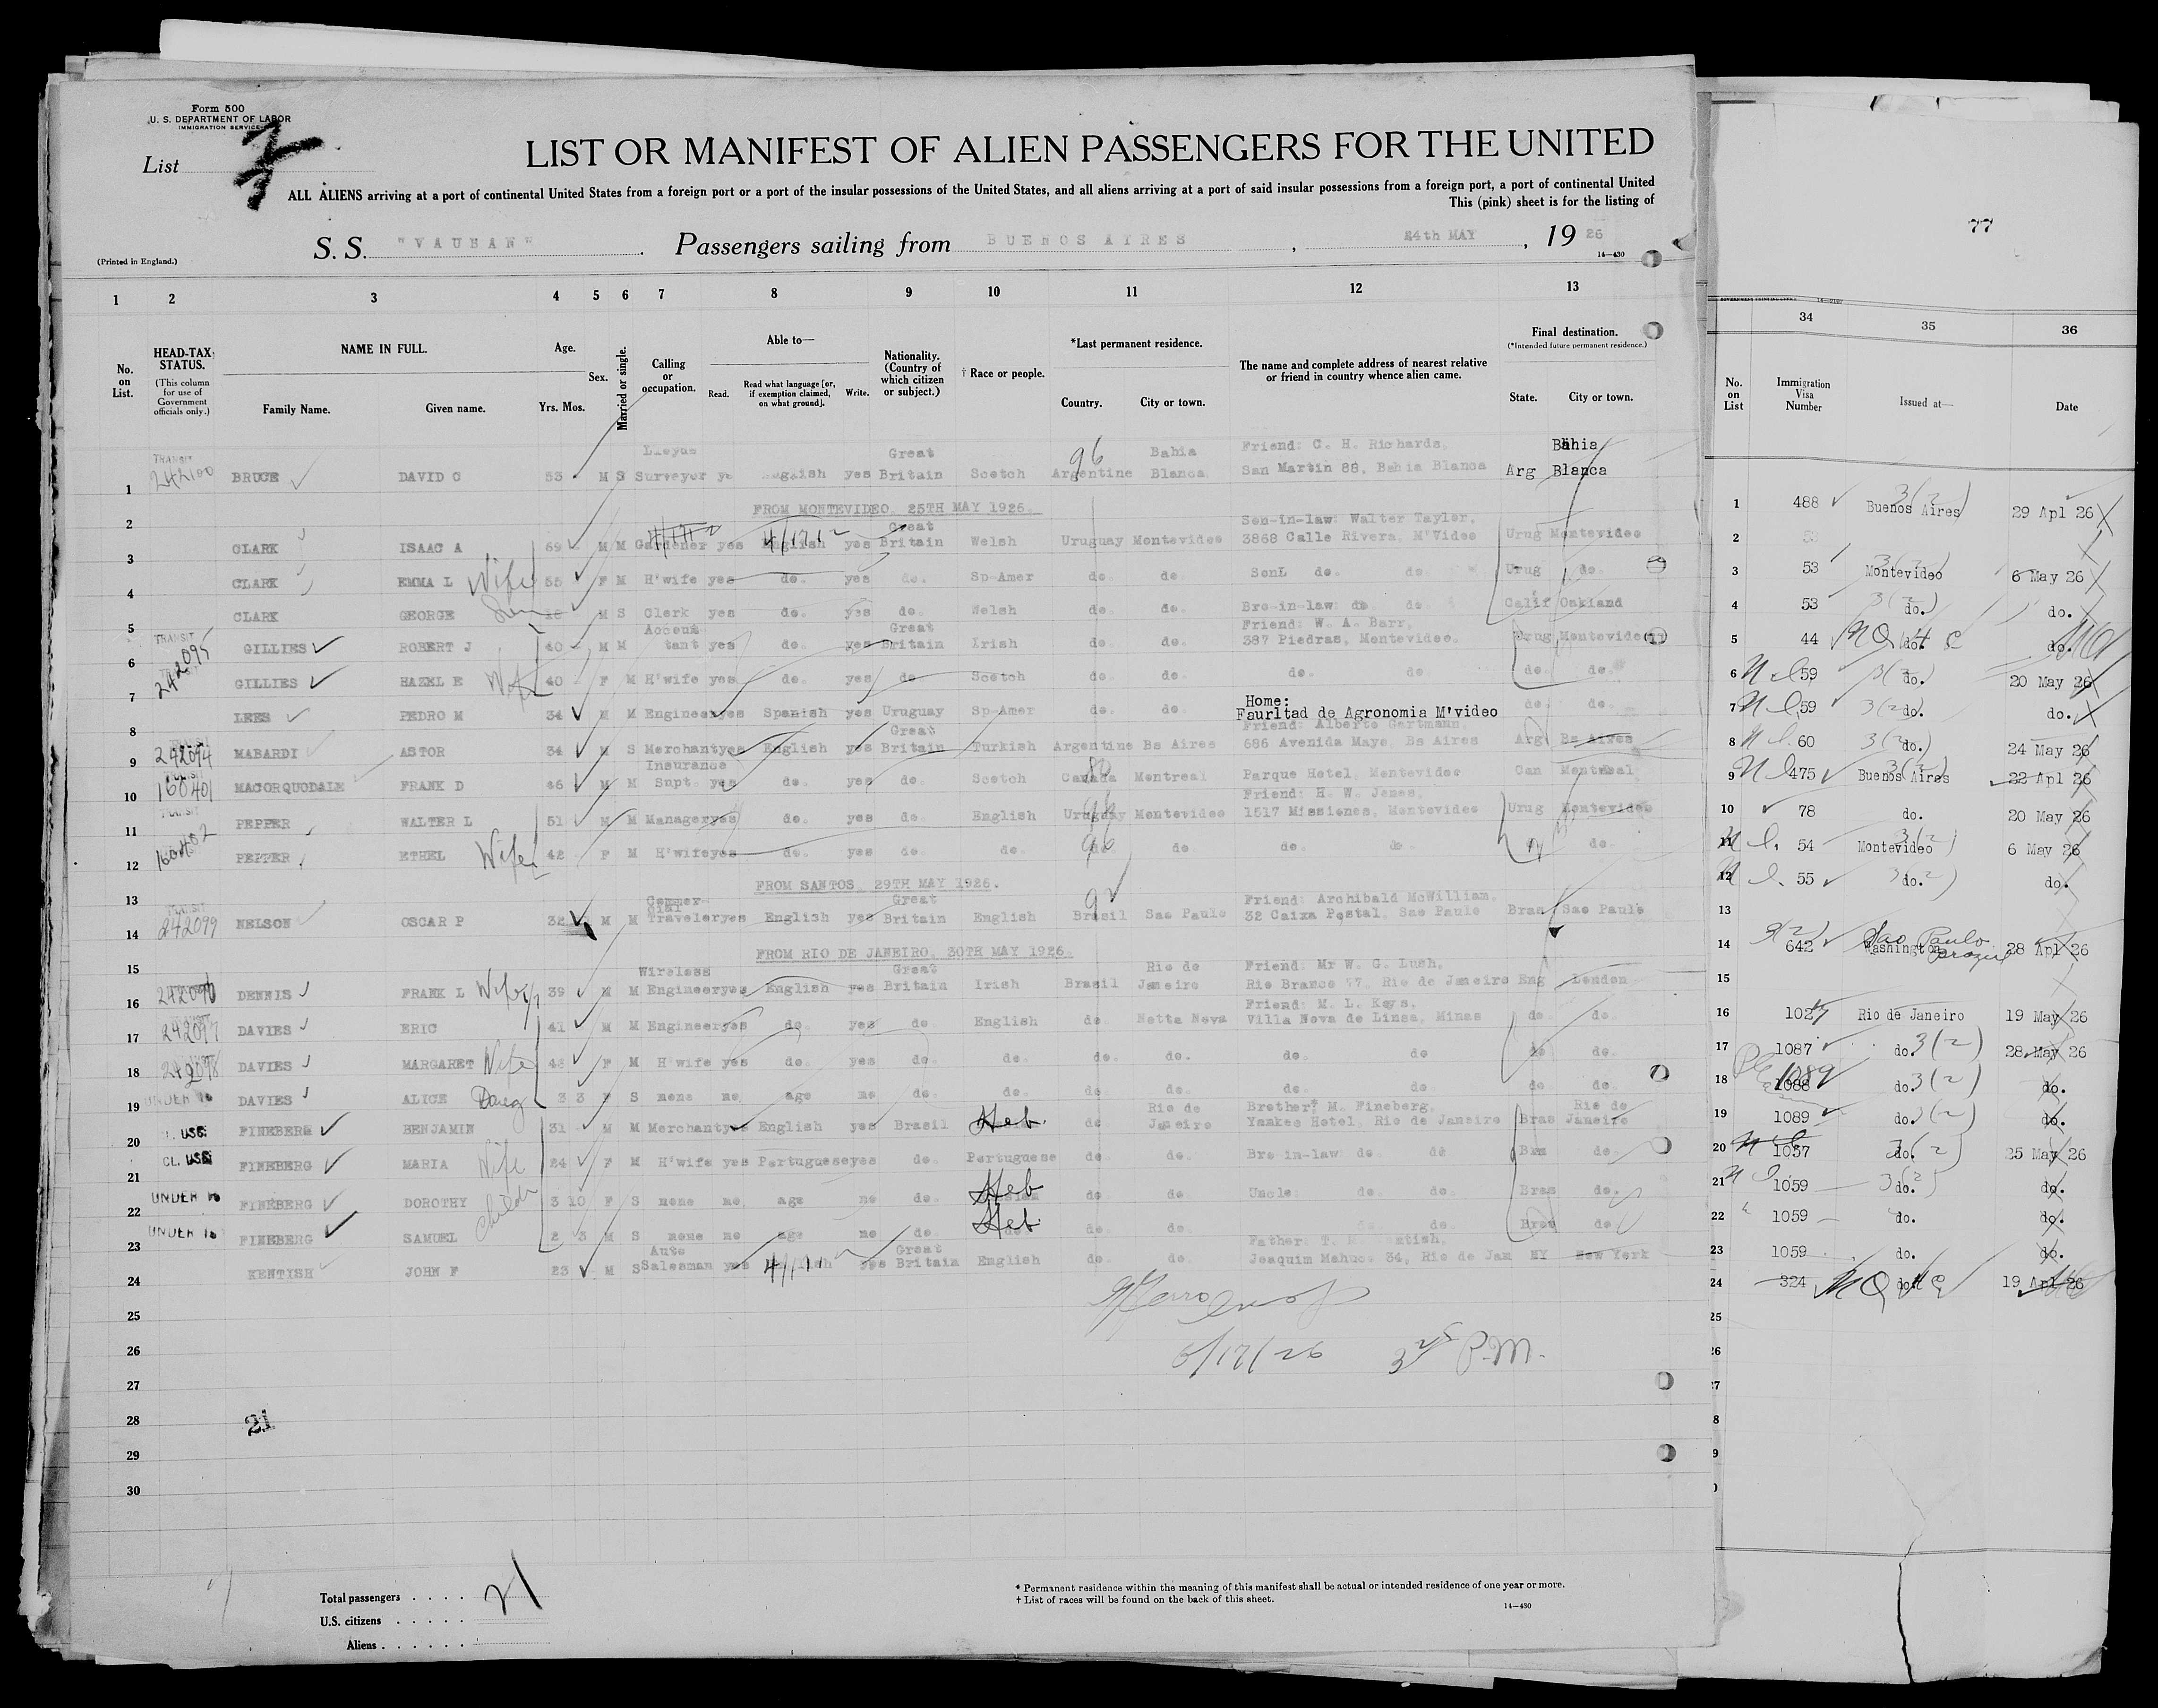 Form 500
U. S. DEPARTMENT OF LABOR
IMMIGRATION SERVICE
List
LIST OR MANIFEST OF ALIEN PASSENGERS FOR THE UNITED
ALL ALIENS arriving at a port of continental United States from a foreign port or a port of the insular possessions of the United States, and all aliens arriving at a port of said insular possessions from a foreign port, a port of continental United
This (pink) sheet is for the listing of
77
(Printed in England.)
S. S. "VAUBAN" Passengers sailing from BUENOS AIRES , 24th MAY , 19 26
14—430
1 2 3 4 5 6 7 8 9 10 11 12 13
34 35 36
No. on List.
HEAD-TAX STATUS.
(This column for use of Government officials only.)
NAME IN FULL.
Family Name. Given name.
Age.
Yrs. Mos.
Sex.
Married or single.
Calling or occupation.
Able to—
Read. Read what language [or, if exemption claimed, on what ground]. Write.
Nationality. (Country of which citizen or subject.)
† Race or people.
*Last permanent residence.
Country. City or town.
The name and complete address of nearest relative or friend in country whence alien came.
Final destination.
(*Intended future permanent residence.)
State. City or town.
No. on List
Immigration Visa Number
Issued at—
Date
1 TRANSIT 242100 BRUCE DAVID C 53 M S Surveyor English yes Great Britain Scotch 96 Argentine Bahia Blanca Friend: C. H. Richards, San Martin 88, Bahia Blanca Arg Bahia Blanca
2 FROM MONTEVIDEO, 25TH MAY 1926.
3 CLARK ISAAC A 69 M M Gardener yes English yes Great Britain Welsh Uruguay Montevideo Son-in-law: Walter Taylor, 3868 Calle Rivera, M'Video Urug Montevideo
4 CLARK EMMA L Wife 55 F M H'wife yes do. yes do. Sp-Amer do. do. SonL do. do. Urug do.
5 CLARK GEORGE Son M S Clerk yes do. yes do. Welsh do. do. Bro-in-law: do. do. Calif Oakland
6 TRANSIT 242095 GILLIES ROBERT J 40 M M Accountant yes do. yes Great Britain Irish do. do. Friend: W. A. Barr, 387 Piedras, Montevideo. Urug Montevideo
7 GILLIES HAZEL E Wife 40 F M H'wife yes do. yes do Scotch do. do. do. do. do. do.
8 LEES PEDRO M 34 M M Engineer yes Spanish yes Uruguay Sp-Amer do. do. Home: Faurltad de Agronomia M'video do. do.
9 242094 MABARDI ASTOR 34 M S Merchant yes English yes Great Britain Turkish Argentine Bs Aires Friend: Alberto Gartmann, 686 Avenida Mayo, Bs Aires Arg Bs Aires
10 160401 MACORQUODALE FRANK D 46 M M Insurance Supt. yes do. yes do. Scotch Canada Montreal Parque Hotel, Montevideo Can Montreal
11 TRANSIT PEPPER WALTER L 51 M M Manager yes do. yes do. English Uruguay Montevideo Friend: H. W. Jones, 1517 Missiones, Montevideo Urug Montevideo
12 160402 PEPPER ETHEL Wife 42 F M H'wife yes do. yes do. do. do. do. do. do. do.
13 FROM SANTOS, 29TH MAY 1926.
14 TRANSIT 242099 NELSON OSCAR P 32 M M Commercial Traveler yes English yes Great Britain English Brasil Sao Paulo Friend: Archibald McWilliam, 32 Caixa Postal, Sao Paulo Bras Sao Paulo
15 FROM RIO DE JANEIRO, 30TH MAY 1926.
16 DENNIS FRANK L 39 M M Wireless Engineer yes English yes Great Britain Irish Brasil Rio de Janeiro Friend: Mr W. G. Lush, Rio Branco 77, Rio de Janeiro Eng London
17 242097 DAVIES ERIC 41 M M Engineer yes do. yes do. English do. Motta Nova Friend: M. L. Keys, Villa Nova de Linsa, Minas do. do.
18 242098 DAVIES MARGARET Wife F M H'wife yes do. yes do. do. do. do. do. do do do.
19 UNDER 16 DAVIES ALICE Daug 3 3 F S none no, age no do. do. do. do. do. do. do do.
20 FINEBERG BENJAMIN 31 M M Merchant yes English yes Brasil Heb. do Rio de Janeiro Brother: M. Fineberg, Yankee Hotel, Rio de Janeiro Bras Rio de Janeiro
21 FINEBERG MARIA Wife 24 F M H'wife yes Portuguese yes do. Portuguese do. do. Bro-in-law: do. do Bras do.
22 UNDER 16 FINEBERG DOROTHY 3 10 F S none no, age no do. Heb do do. Uncle: do. do. Bras do.
23 UNDER 16 FINEBERG SAMUEL 2 3 M S none no age no do. Heb. do. do. do. do. Bras do
24 KENTISH JOHN F 23 M S Auto Salesman yes yes Great Britain English do. do. Joaquim , 34, Rio de Jan NY New York
25
26 6/17/26 P.M.
27
28 21
29
30
1 488 Buenos Aires 29 Apl 26
2
3 53 Montevideo 6 May 26
4 53 do. do.
5 44 do. do.
6 59 do. 20 May 26
7 59 do. do.
8 60 do. 24 May 26
9 475 Buenos Aires 22 Apl 26
10 78 do. 20 May 26
11 54 Montevideo 6 May 26
12 55 do. do.
13
14 642 Washington Sao Paulo 28 Apl 26
15
16 Rio de Janeiro 19 May 26
17 1087 do. 3(2) 28 May 26
18 1088 1089 do. 3(2) do.
19 1089 do. do.
20 1057 do. 25 May 26
21 1059 do. do.
22 1059 do. do.
23 1059 do. do.
24 324 do. 19 Apl 26
Total passengers . . . . 21
U.S. citizens . . . . .
Aliens . . . . . .
* Permanent residence within the meaning of this manifest shall be actual or intended residence of one year or more.
† List of races will be found on the back of this sheet.
14—430